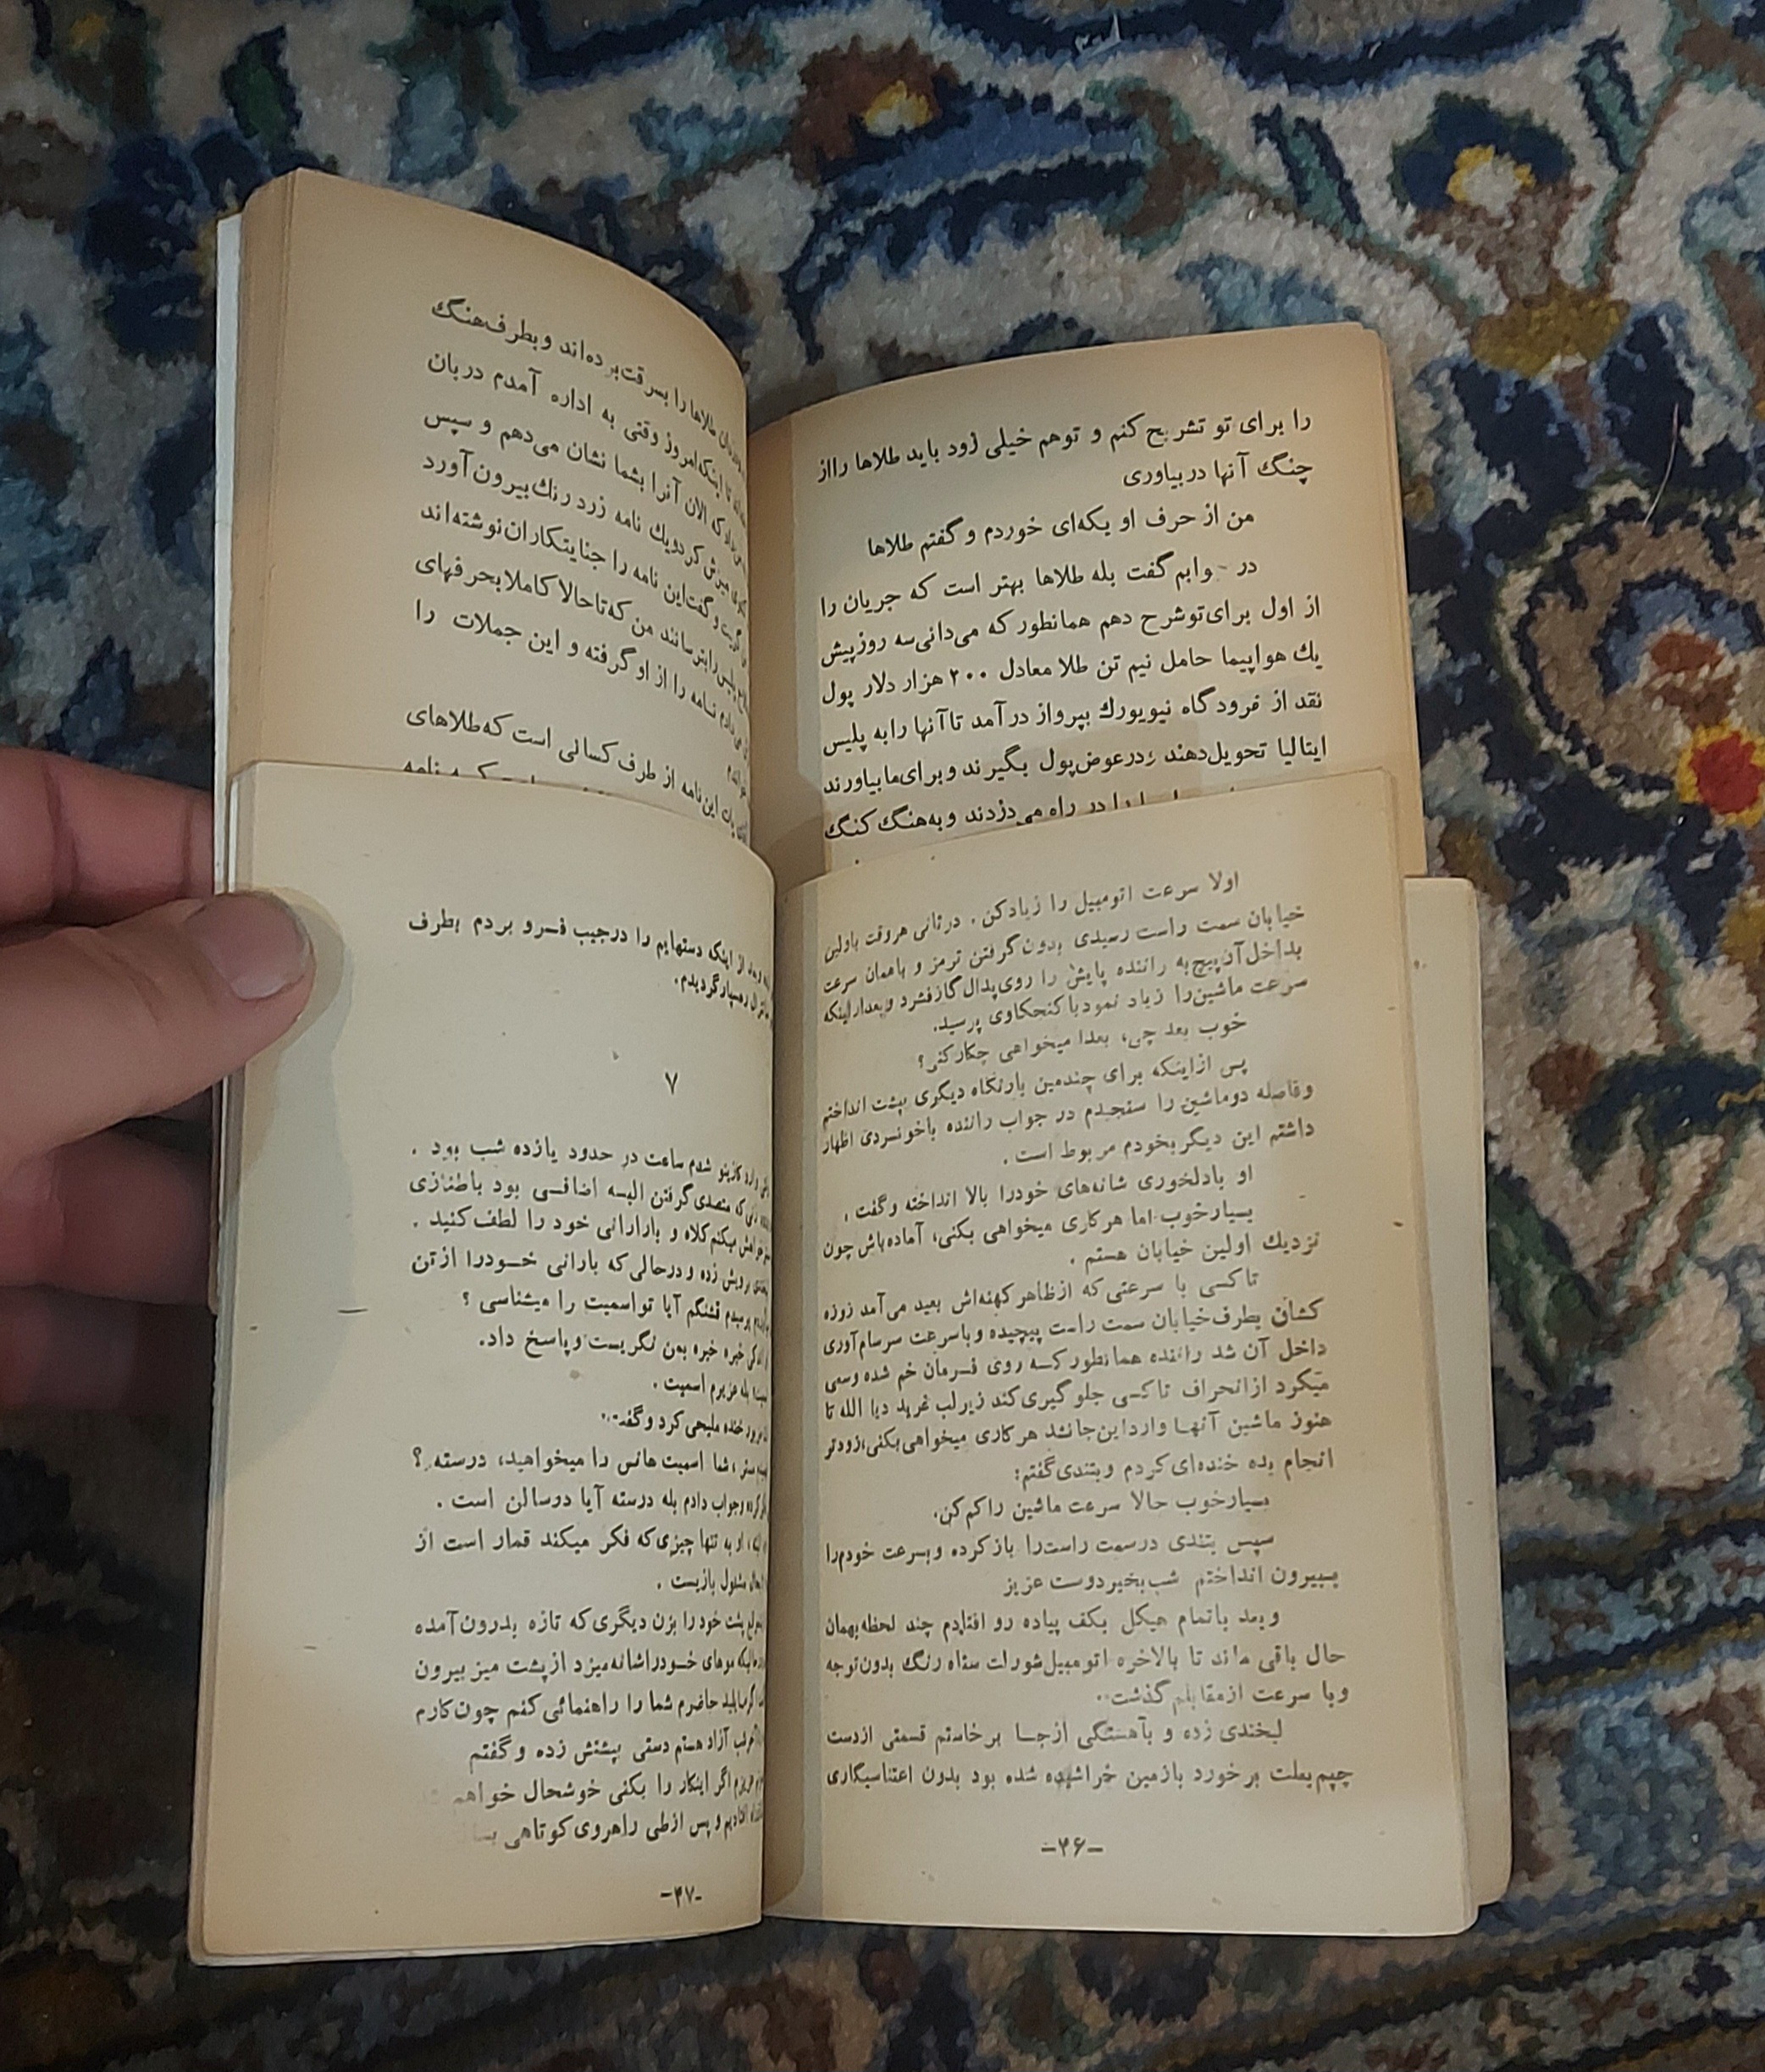 را برای تو تشریح کنم و توهم خیلی زود باید طلاها رااز
چنگ آنها دربیاوری
من از حرف او یکه‌ای خوردم و گفتم طلاها
در وابم گفت بله طلاها بهتر است که جریان را
از اول برای‌توشرح دهم همانطور که می‌دانی‌سه روزپیش
یك هواپیما حامل نیم تن طلا معادل ۲۰۰ هزار دلار پول
نقد از فرودگاه نیویورك بپرواز درآمد تاآنها رابه پلیس
ایتالیا تحویل‌دهند ودرعوض‌پول بگیرند وبرای‌مابیاورند
را در راه می‌دزدند وبه‌هنگ کنگ
طلاها را بسرقت‌برده‌اند وبطرف‌هنگ
اینکه‌امروز وقتی به اداره آمدم دربان
که الان آنرا بشما نشان می‌دهم و سپس
کردویك نامه زرد رنك‌بیرون‌آورد
و گفت‌این نامه را جنایتکاران‌نوشته‌اند
رابترسانند من که‌تاحالاکاملابحرفهای
دادم نامه را از اوگرفته و این جملات را
خواندم
این‌نامه از طرف کسانی است که‌طلاهای
نامه
اولا سرعت اتومبیل را زیادکن . درثانی هروقت باولین
خیابان سمت راست رسیدی بدون گرفتن ترمز و باهمان سرعت
بداخل‌آن‌پیچ‌به راننده پایش را روی‌پدال‌گازفشرد وبعدازاینکه
سرعت ماشین‌را زیاد نمودباکنجکاوی پرسید.
خوب بعد چی، بعدا میخواهی چکارکنی؟
پس ازاینکه برای چندمین بارنگاه دیگری بپشت انداختم
وفاصله دوماشین را سنجیدم در جواب راننده باخونسردی اظهار
داشتم این دیگربخودم مربوط است .
او بادلخوری شانه‌های خودرا بالا انداخته وگفت .
بسیارخوب‌اما هرکاری میخواهی بکنی، آماده‌باش‌چون
نزدیك اولین خیابان هستم .
تاکسی با سرعتی‌که ازظاهرکهنه‌اش بعید می‌آمد زوزه
کشان بطرف‌خیابان سمت راست پیچیده وباسرعت سرسام‌آوری
داخل آن شد راننده همانطورکه روی فرمان خم شده وسعی
میکرد ازانحراف تاکسی جلوگیری‌کند زیرلب غرید دیا الله تا
هنوز ماشین آنها وارداین‌جانشد هرکاری میخواهی‌بکنی،زودتر
انجام بده خنده‌ای‌کردم وبتندی‌گفتم:
بسیارخوب حالا سرعت ماشین راکم‌کن.
سپس بتندی درسمت راست‌را بازکرده وبسرعت خودم‌را
ببیرون انداختم شب‌بخیردوست عزیز
وبعد باتمام هیکل بکف پیاده رو افتادم چند لحظه‌بهمان
حال باقی ماند تا بالاخره اتومبیل‌شورلت سیاه رنگ بدون‌توجه
وبا سرعت ازمقابلم گذشت..
لبخندی زده و بآهستگی ازجا برخاستم قسمتی ازدست
چپم‌بعلت برخورد بازمین خراشیده شده بود بدون اعتناسیگاری
-۴۶-
از اینکه دستهایم را درجیب فرو بردم بطرف
رهسپارگردیدم.
۷
وارد کازینو شدم ساعت در حدود یازده شب بود .
که متصدی‌گرفتن البسه اضافی بود باطنازی
میکنم‌کلاه و بارارانی خود را لطف‌کنید .
برویش زده و درحالی‌که بارانی خودرا ازتن
پرسیدم قشنگم آیا تواسمیت را میشناسی ؟
خیره خیره بمن نگریست وپاسخ داد.
بله عزیزم اسمیت .
خنده ملیحی‌کرد وگفت.
شما اسمیت هانس را میخواهید، درسته ؟
وجواب دادم بله درسته آیا دوسالن است .
او به تنها چیزی‌که فکر میکند قمار است از
مشغول بازیست .
پشت خود را بزن دیگری‌که تازه بدرون‌آمده
موهای خودراشانه‌میزد ازپشت میز بیرون
حاضرم شما را راهنمائی کنم چون‌کارم
آزاد هستم دستی بپشتش زده و گفتم
اگر اینکار را بکنی خوشحال خواهم
وپس ازطی راهروی‌کوتاهی
-۴۷-